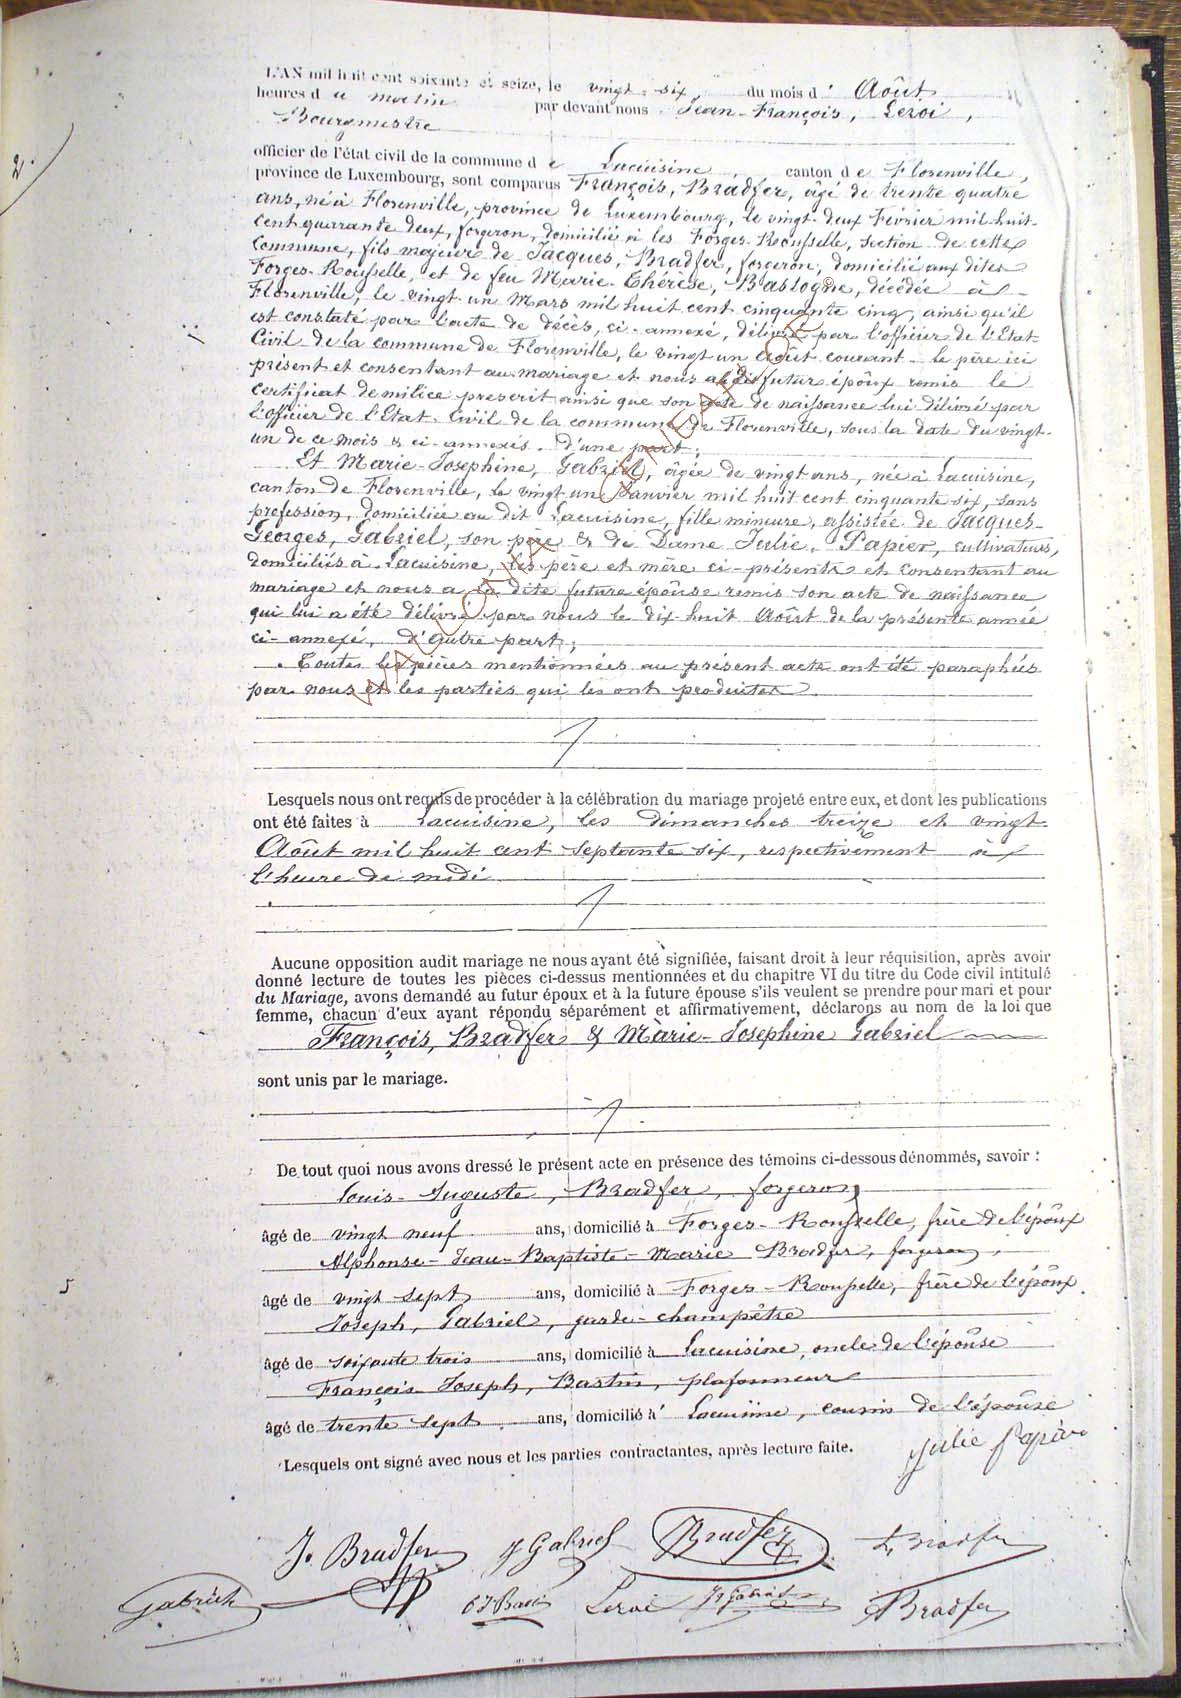 L'AN mil huit cent soixante et seize, le vingt-six, du mois d' Août
heures d u matin par devant nous Jean-François, Leroi,
Bourgmestre
2.
officier de l'état civil de la commune d e Lacuisine, canton d e Florenville,
province de Luxembourg, sont comparus François, Bradfer, âgé de trente quatre
ans, né à Florenville, province de Luxembourg, le vingt-deux Février mil huit-
cent quarante deux, forgeron, domicilié à les Forges-Rousselle, section de cette
Commune, fils majeur de Jacques, Bradfer, forgeron, domicilié aux dites
Forges-Rousselle, et de feu Marie-Thérèse, Bastogne, décédée à
Florenville, le vingt-un Mars mil huit cent cinquante cinq, ainsi qu'il
est constaté par l'acte de décès, ci-annexé, délivré par l'officier de l'Etat-
Civil de la commune de Florenville, le vingt un Août courant - le père ici
présent et consentant au mariage et nous a le dit futur époux remis le
certificat de milice prescrit ainsi que son acte de naissance lui délivré par
l'officier de l'Etat-Civil de la commune de Florenville, sous la date du vingt-
un de ce mois & ci-annexés. d'une part;
Et Marie-Josephine, Gabriel, âgée de vingt ans, née à Lacuisine,
canton de Florenville, le vingt un Janvier mil huit cent cinquante six, sans
profession, domiciliée au dit Lacuisine, fille mineure, assistée de Jacques-
Georges, Gabriel, son père & de Dame Julie, Papier, cultivateurs,
domiciliés à Lacuisine, les père et mère ci-présents et consentant au
mariage et nous a la dite future épouse remis son acte de naissance
qui lui a été délivré par nous le dix-huit Août de la présente année
ci-annexé, d'autre part;
Toutes les pièces mentionnées au présent acte ont été paraphées
par nous et les parties qui les ont produites
WALLONIA GENEAFLOR ©
Lesquels nous ont requis de procéder à la célébration du mariage projeté entre eux, et dont les publications
ont été faites à Lacuisine, les dimanches treize et vingt
Août mil huit cent septante six, respectivement à
l'heure de midi
Aucune opposition audit mariage ne nous ayant été signifiée, faisant droit à leur réquisition, après avoir
donné lecture de toutes les pièces ci-dessus mentionnées et du chapitre VI du titre du Code civil intitulé
du Mariage, avons demandé au futur époux et à la future épouse s'ils veulent se prendre pour mari et pour
femme, chacun d'eux ayant répondu séparément et affirmativement, déclarons au nom de la loi que
François, Bradfer & Marie-Josephine Gabriel
sont unis par le mariage.
De tout quoi nous avons dressé le présent acte en présence des témoins ci-dessous dénommés, savoir :
Louis-Auguste, Bradfer, forgeron,
âgé de vingt neuf ans, domicilié à Forges-Rousselle, frère de l'époux
Alphonse-Jean-Baptiste-Marie Bradfer, forgeron,
âgé de vingt sept ans, domicilié à Forges-Rousselle, frère de l'époux.
Joseph, Gabriel, garde-champêtre
âgé de soixante trois ans, domicilié à Lacuisine, oncle de l'épouse
François Joseph, Bastin, plafonneur
âgé de trente sept ans, domicilié à Lacuisine, cousin de l'épouse
Lesquels ont signé avec nous et les parties contractantes, après lecture faite. Julie Papier
J. Bradfer J Gabriel Bradfer L Bradfer
Gabriel Leroi J Gabriel ABradfer